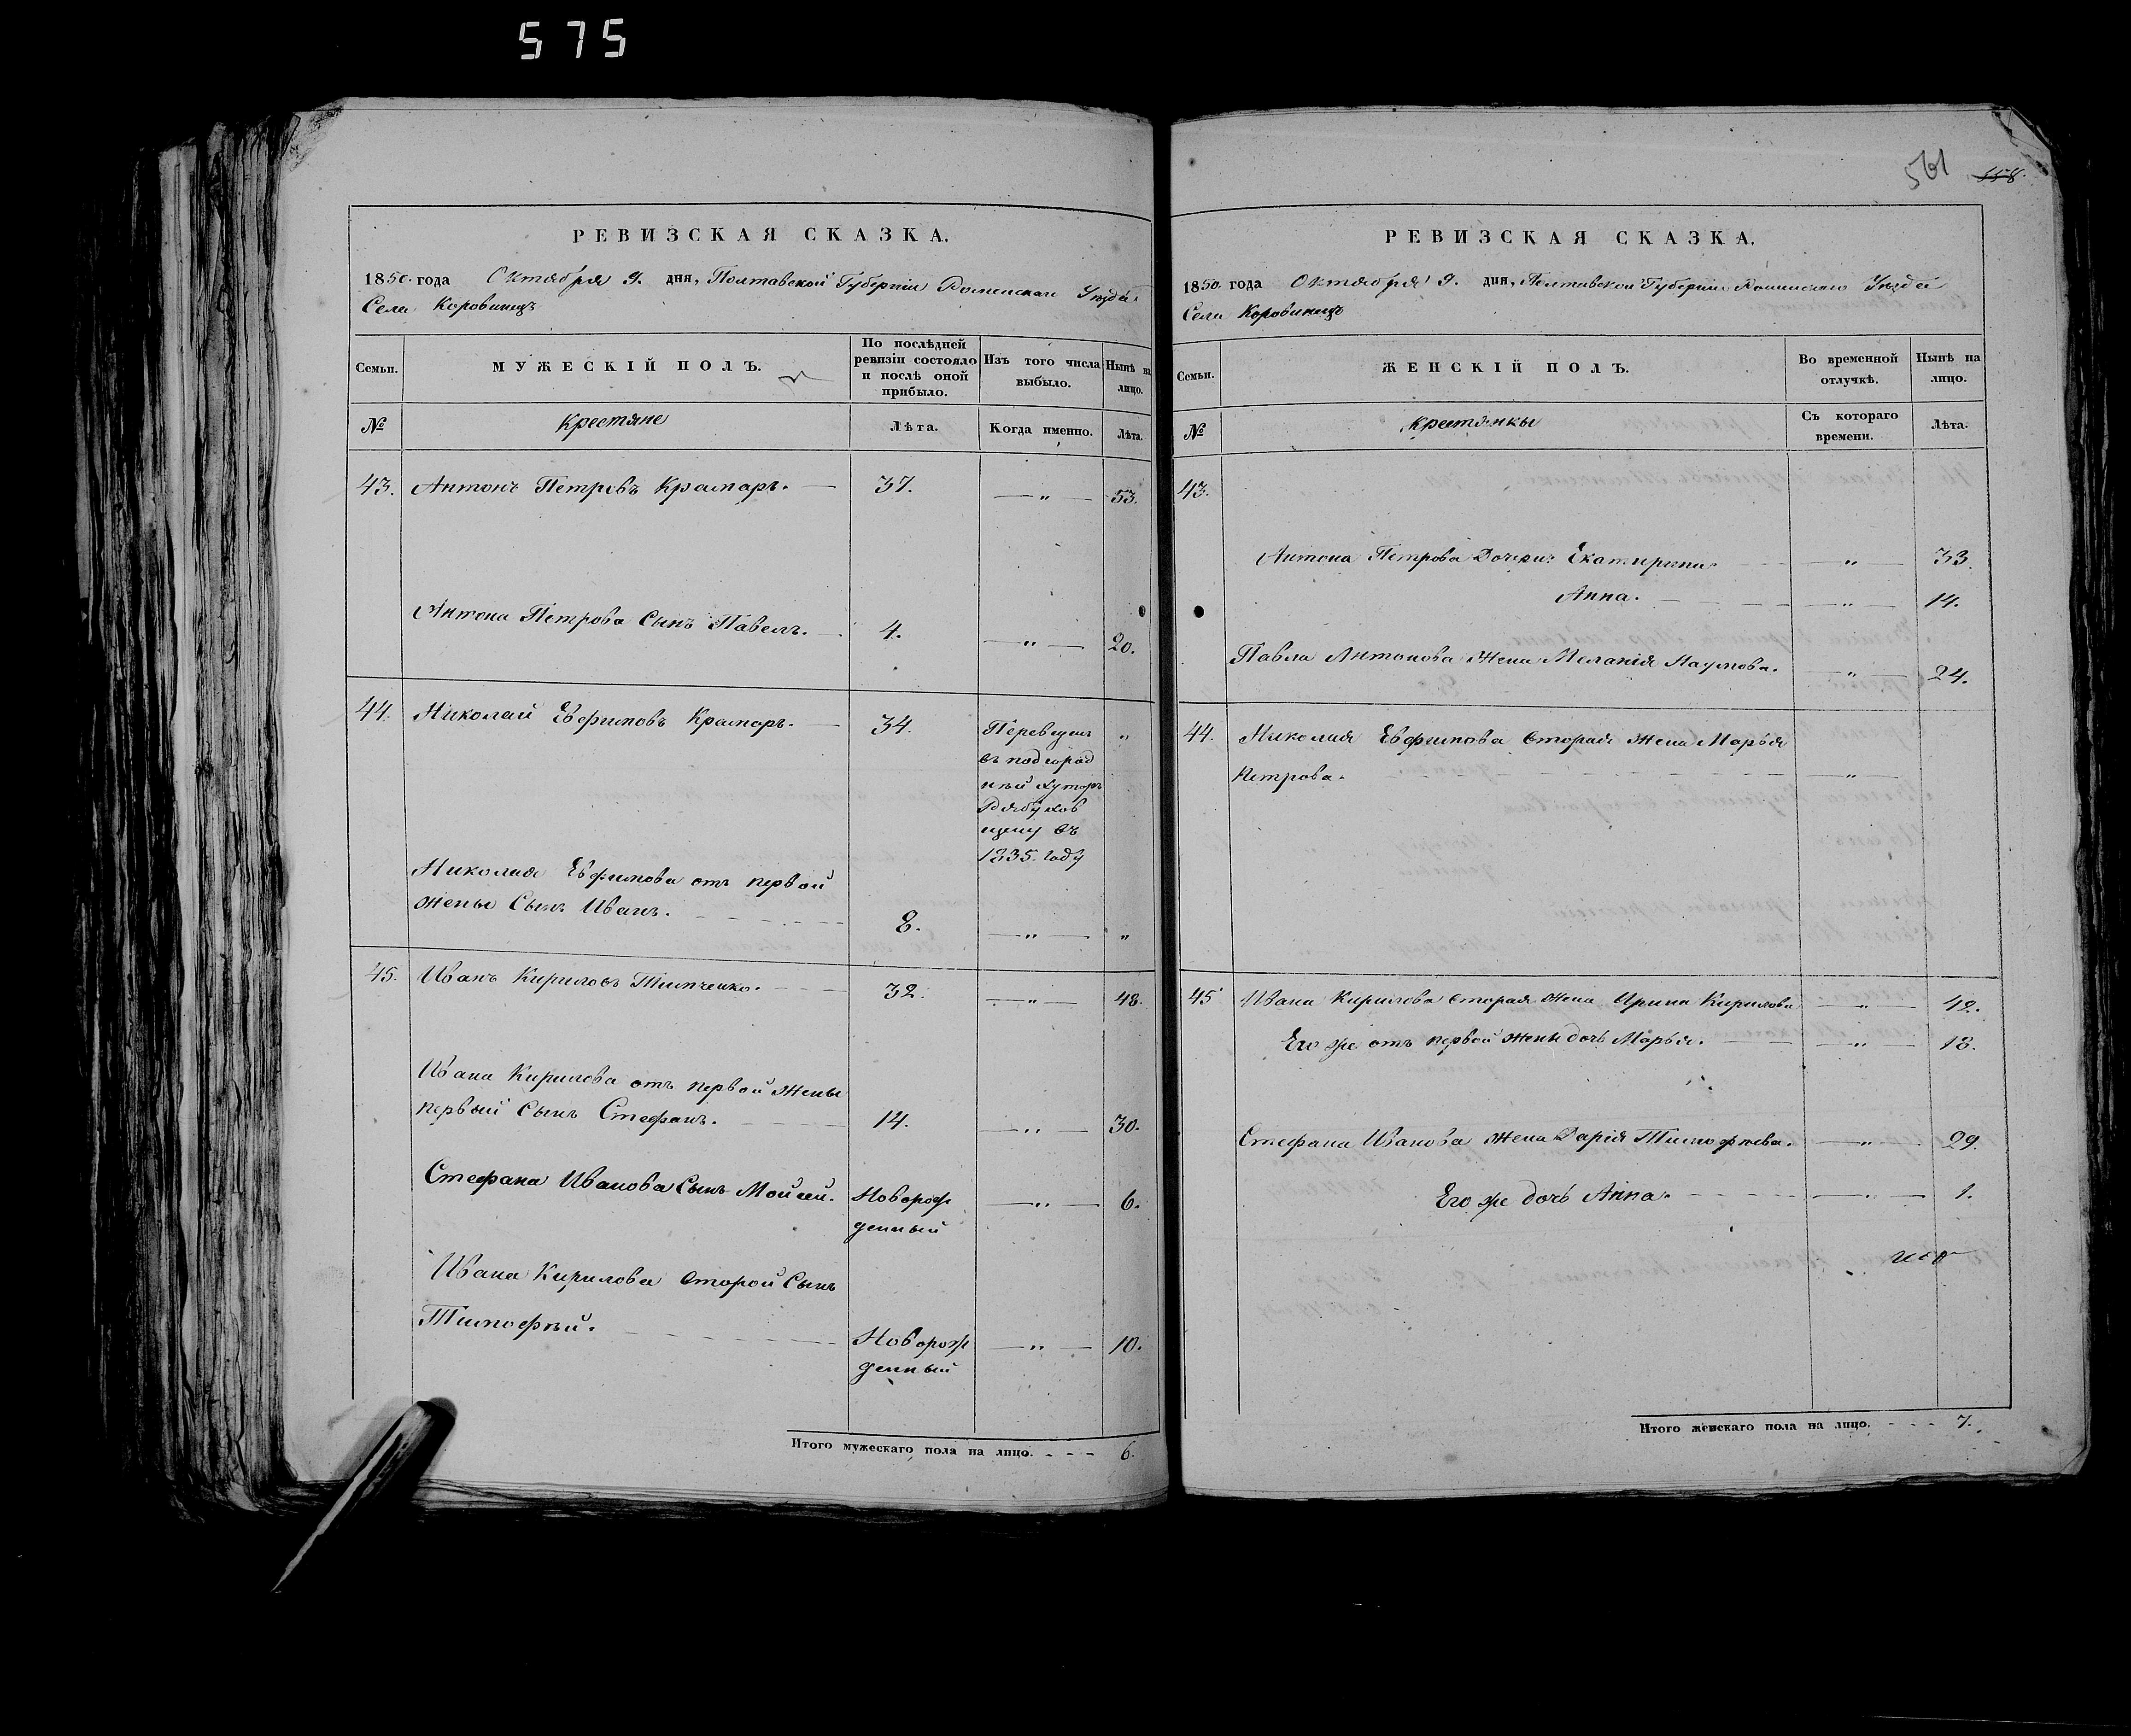 575
561 558.
РЕВИЗСКАЯ СКАЗКА.
1850. года Октября 9. дня, Полтавской Губернии Роменскаго Уѣзда
Села Коровинецъ
Семьи. МУЖЕСКІЙ ПОЛЪ. По послѣдней ревизіи состояло и послѣ оной прибыло. Изъ того числа выбыло. Нынѣ на лицо.
№ Крестяне Лѣта. Когда именно. Лѣта.
43. Антонъ Петровъ Крамаръ. 37. — " — 53.
Антона Петрова Сынъ Павелъ. 4. — " — 20.
44. Николай Евфимовъ Крамаръ. 34. Переведенъ "
въ подгород
ный хуторъ
Рябухов
щину въ
1835. году
Николая Евфимова отъ первой
жены Сынъ Иванъ. 8. — " — "
45. Иванъ Кириловъ Тимченко. 32. — " — 48.
Ивана Кирилова отъ первой жены
первый Сынъ Стефанъ. 14. — " — 30.
Стефана Иванова Сынъ Мойсей. Новорож — " — 6.
денный
Ивана Кирилова второй Сынъ
Тимофѣй. Новорож — " — 10.
денный
Итого мужескаго пола на лицо. - - - 6.
РЕВИЗСКАЯ СКАЗКА.
1850. года Октября 9. дня, Полтавской Губернии Роменскаго Уѣзда
Села Коровинецъ
Семьи. ЖЕНСКІЙ ПОЛЪ. Во временной отлучкѣ. Нынѣ на лицо.
№ крестянки Съ котораго времени. Лѣта.
43.
Антона Петрова Дочери: Екатирина. — " — 33.
Анна. — " — 14.
Павла Антонова Жена Меланія Наумова. — " — 24.
44. Николая Евфимова вторая жена Марья
Петрова. — " —
45 Ивана Кирилова вторая жена Ирина Кирилова — " — 42.
Его же отъ первой жены дочь Марья. — " — 18.
Стефана Иванова жена Дарія Тимофѣева. — " — 29.
Его же дочь Анна. — " — 1.
Итого женскаго пола на лицо. - - - 7.